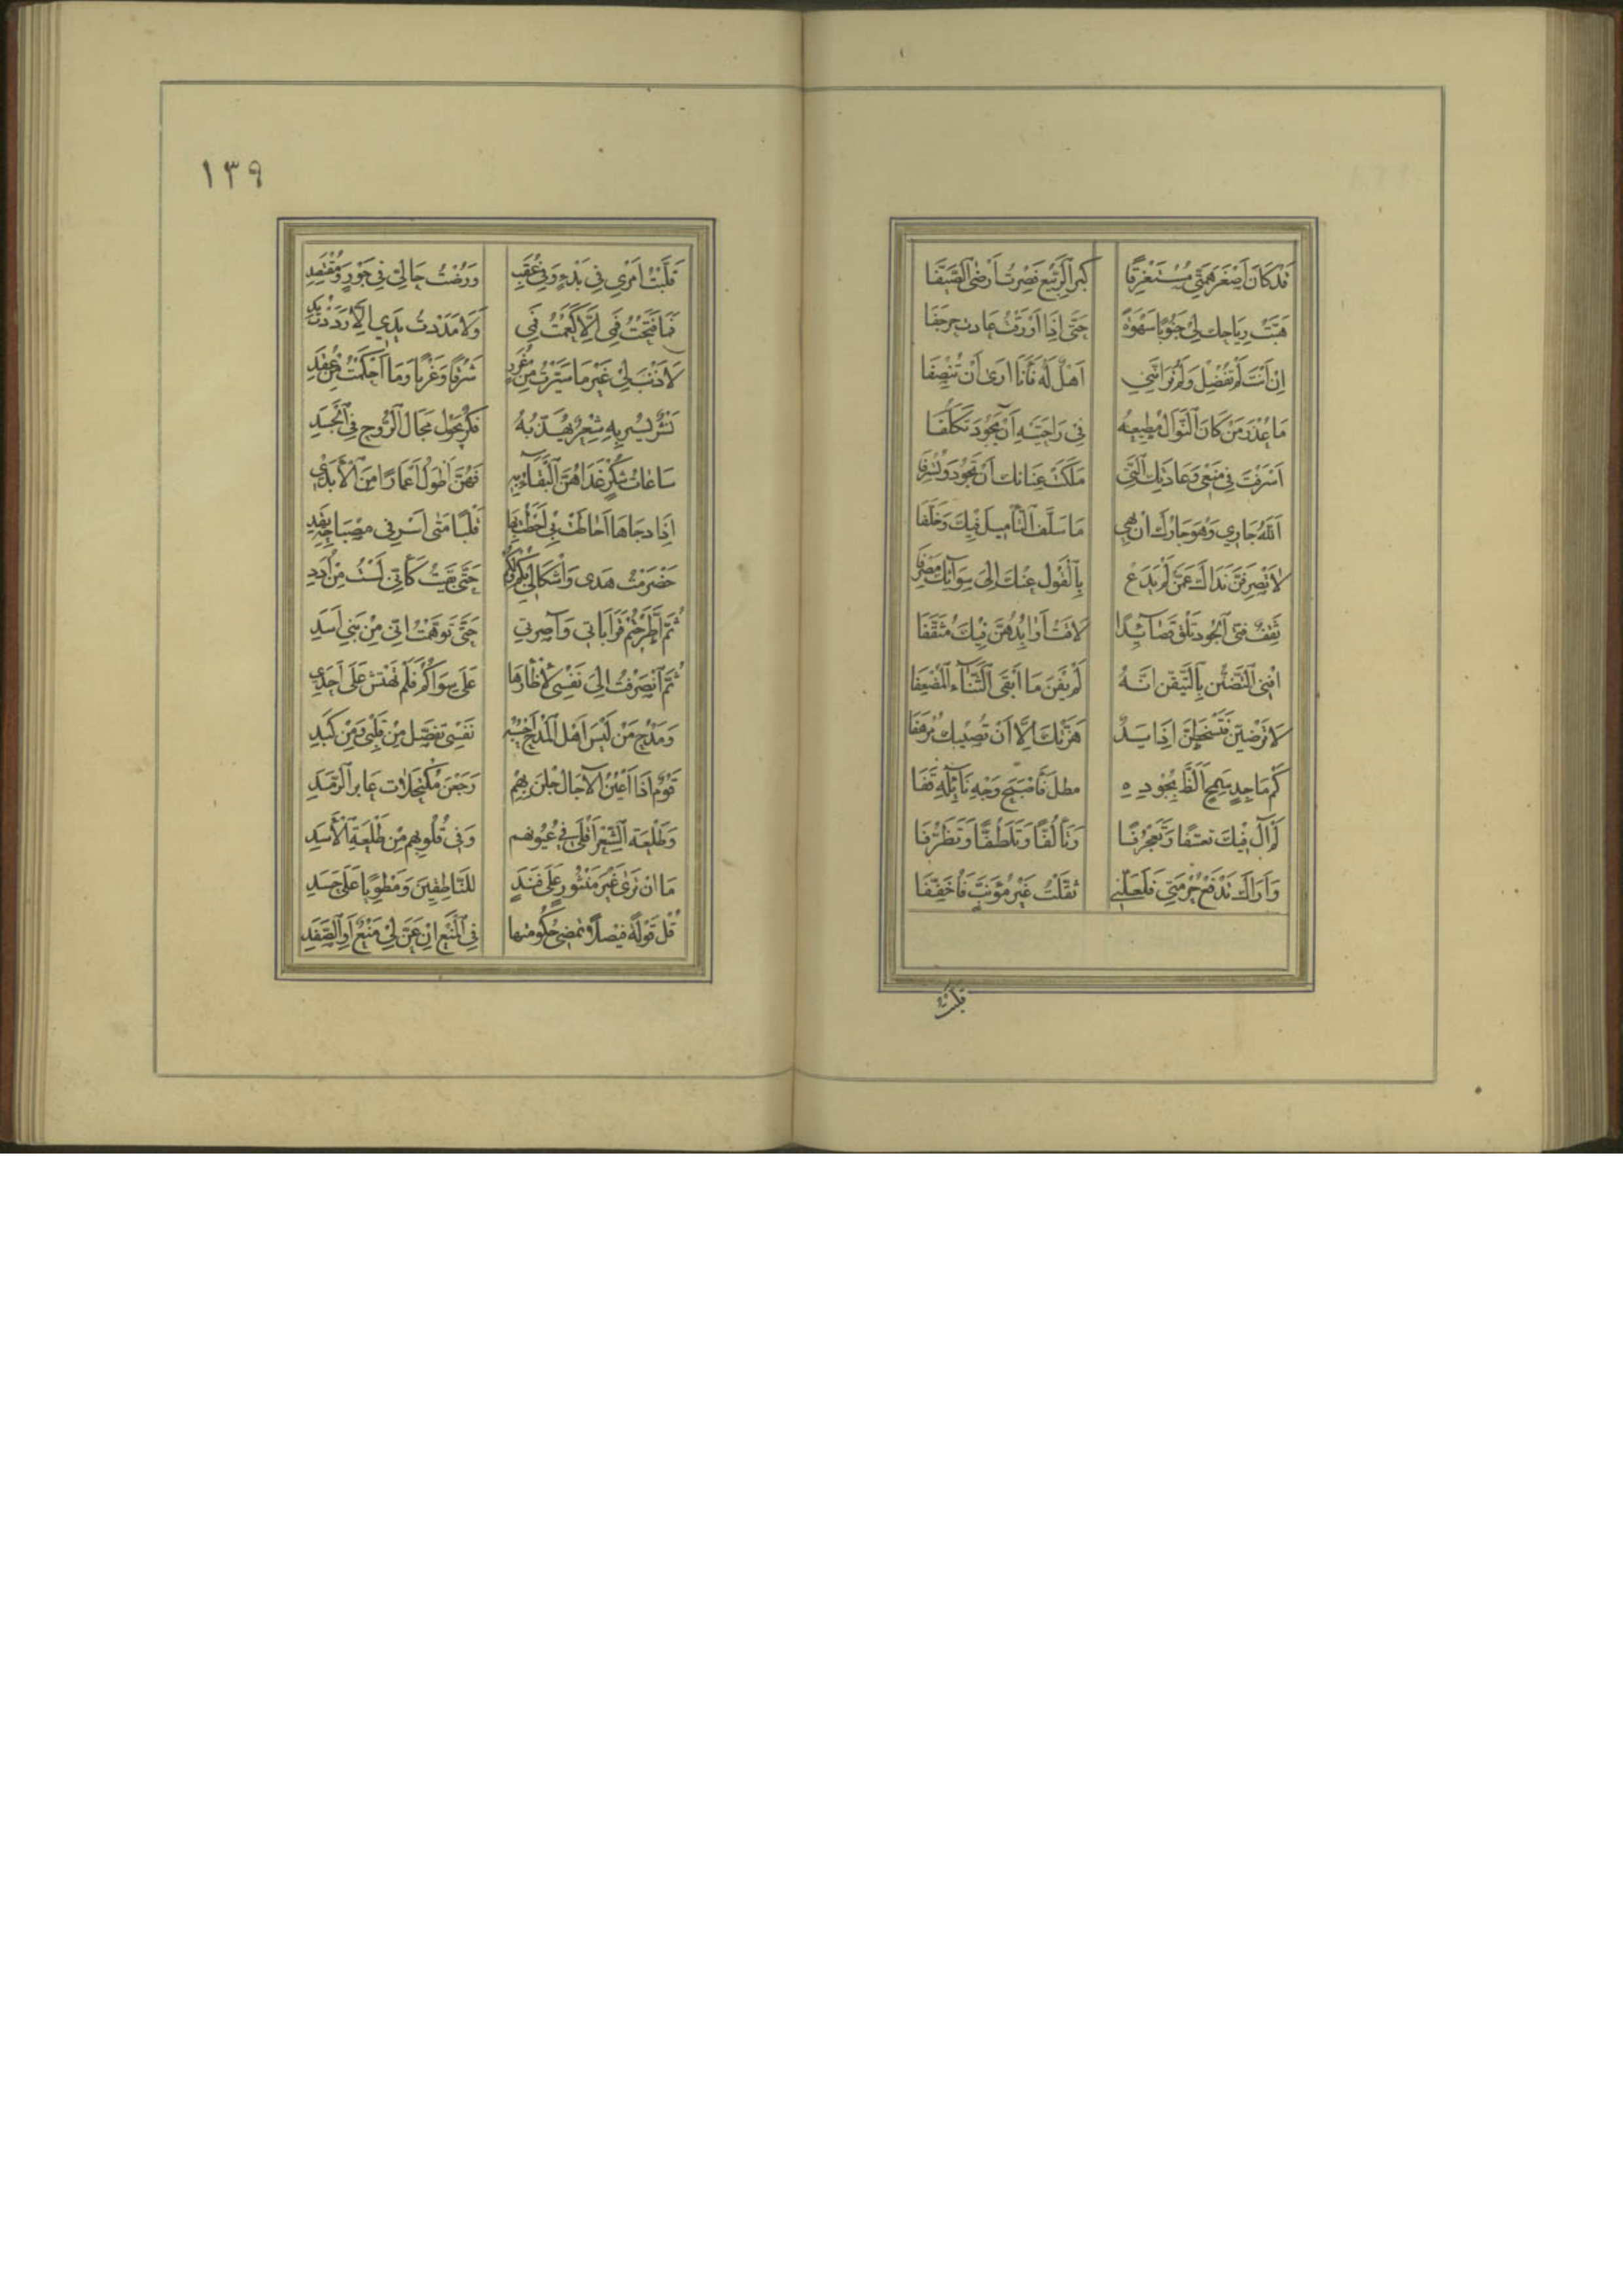 قَدْ كَانَ أَصْغَرَ هِمَّتِي مُسْتَغْرِقًا كِبَرَ الرَّبِيعِ فَصِرْتُ أَرْضَى الصَّيِّفَا
هَبَّتْ رِيَاحُكَ لِيْ جَنُوبًا سَهْوَةً حَتَّى إِذَا أَوْرَقْتُ عَادَتْ حَرْجَفَا
إِنْ أَنْتَ لَمْ تُفْضِلْ وَلَمْ تَرَ أَنَّنِي أَهْلٌ لَهُ فَأَنَا أَرَى أَنْ تُنْصِفَا
مَا عُذْرُ مَنْ كَانَ النَّوَالُ مُطِيعَهُ فِي رَاحَتَيْهِ أَنْ يَجُودَ تَكَلُّفَا
أَسْرَفْتَ فِي مَنْعِي وَعَادَتُكَ الَّتِي مَلَكَتْ عِنَانَكَ أَنْ تَجُودَ وَتُسْرِفَا
اَللهُ جَارِي وَهُوَ جَارُكَ أَنْ يَهِي مَا سَلَّفَ التَّأْمِيلُ فِيكَ وَخَلَّفَا
لَا تَصْرِفَنَّ نَدَاكَ عَمَّنْ لَمْ يَدَعْ بِالْقَوْلِ عَنْكَ إِلَى سِوَائِكَ مَصْرِفَا
ثَقِّفْ فَتَى الْجُودِ تَلْقَ قَصَائِدًا لَاقَتْ أَوَابِدُهُنَّ فِيكَ مُثَقِّفَا
افْنِي التَّضَنُّن بِالتَّيَقُّنِ انَّهُ لَمْ يَفْنَ مَا أَبْقَى الثَّنَاءَ الْمُضْعِفَا
كَمْ مَاجِدٍ سَمِحٍ أَلَظَّ بِجُودِهِ مَطْلٌ فَأَصْبَحَ وَجْهُ نَائِلِهِ قَفَا
لَمْ آلُ فِيكَ تَعَسُّفًا وَتَعَجْرُفًا وَتَأَلُّفًا وَتَلَطُّفًا وَتَظَرُّفَا
وَأَرَاكَ تَدْفَعُ حُرْمَتِي فَلَعَلَّنِي ثَقَّلْتُ غَيْرَ مُؤَنَّبٍ فَأُخَفِّفَا
قلّبت
١٣٩
قَلَّبْتُ أَمْرِي فِي بَدْءٍ وَفِي عُقَبِ وَرُضْتُ حَالِيَ فِي جَوْرٍ وَمُقْتَصِدِ
فَمَا فَتَحْتُ فَمِي إِلَّا كَعَمْتُ فَمِي وَلَا مَدَدْتُ يَدِي إِلَّا رَدَدْتُ يَدِي
لَا ذَنْبَ لِي غَيْرُ مَا سَيَّرْتُ مِنْ غُرَرِ شَرْقًا وَغَرْبًا وَمَا أَحْكَمْتُ مِنْ عُقَدِ
نَثْرٌ يَسِيرُ بِهِ شِعْرٌ يُهَذِّبُهُ فِكْرٌ يَجُولُ مَجَالَ الرُّوحِ فِي الْجَسَدِ
سَاعَاتُ شُكْرٍ غَدَاهُنَّ الْبَقَاءُ بِهِ فَهُنَّ أَطْوَلُ أَعْمَارًا مِنَ الْأَبَدِ
حَضَرْمَتْ هَدْيِ وَاشْكَالِي بِكُمْ وَلَكُمْ حَتَّى بَقِيتُ كَأَنِّي لَسْتُ مِنْ أُدَدِ
ثُمَّ اطَّرَحْتُمْ قَرَابَاتِي وَآصِرَتِي حَتَّى تَوَهَّمْتُ أَنِّي مِنْ بَنِي أَسَدِ
ثُمَّ انْصَرَفْتُ إِلَى نَفْسِي لِأَظْأَرَهَا عَلَى سِوَاكُمْ فَلَمْ تَهْتَشَّ عَلَى أَحَدِ
وَمَدْحُ مَنْ لَيْسَ أَهْلَ الْمَدْحِ نَفْسِي تُفَصَّلُ مِنْ قَلْبِي وَمِنْ كَبِدِ
قَوْمٌ إِذَا أَعْيُنُ الْآجَالِ جُلْنَ بِهِمْ رَجَعْنَ مُكْتَحِلَاتٍ عَائِرَ الرَّمَدِ
وَطَلْعَةُ الشِّعْرِ أَقْلَى فِي عُيُونِهِمِ وَفِي قُلُوبِهِمِ مِنْ طَلْعَةِ الْأَسَدِ
مَا إِنْ تَرَى غَيْرَ مَنْثُورٍ عَلَى فَنَدٍ لِلنَّاطِقِينَ وَمَطْوِيًّا عَلَى حَسَدِ
قُلْ قَوْلَةً فَيْصَلًا تَمْضِي حُكُومَتُهَا فِي الْمَنْعِ إِنْ عَنَّ لِي مَنْعٌ أَوِ الصَّفَدِ